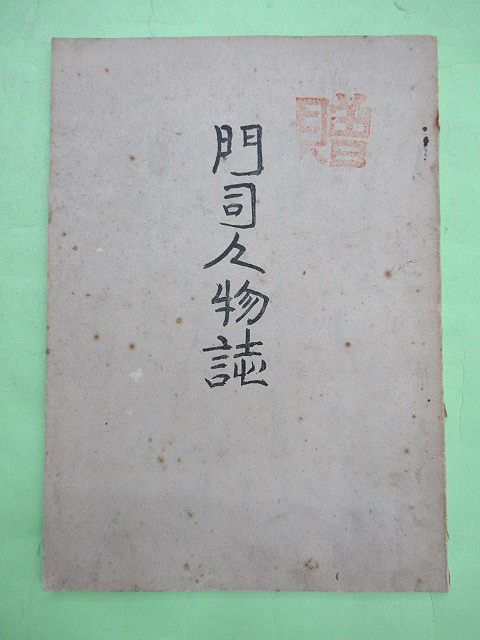 贈
門司人物誌